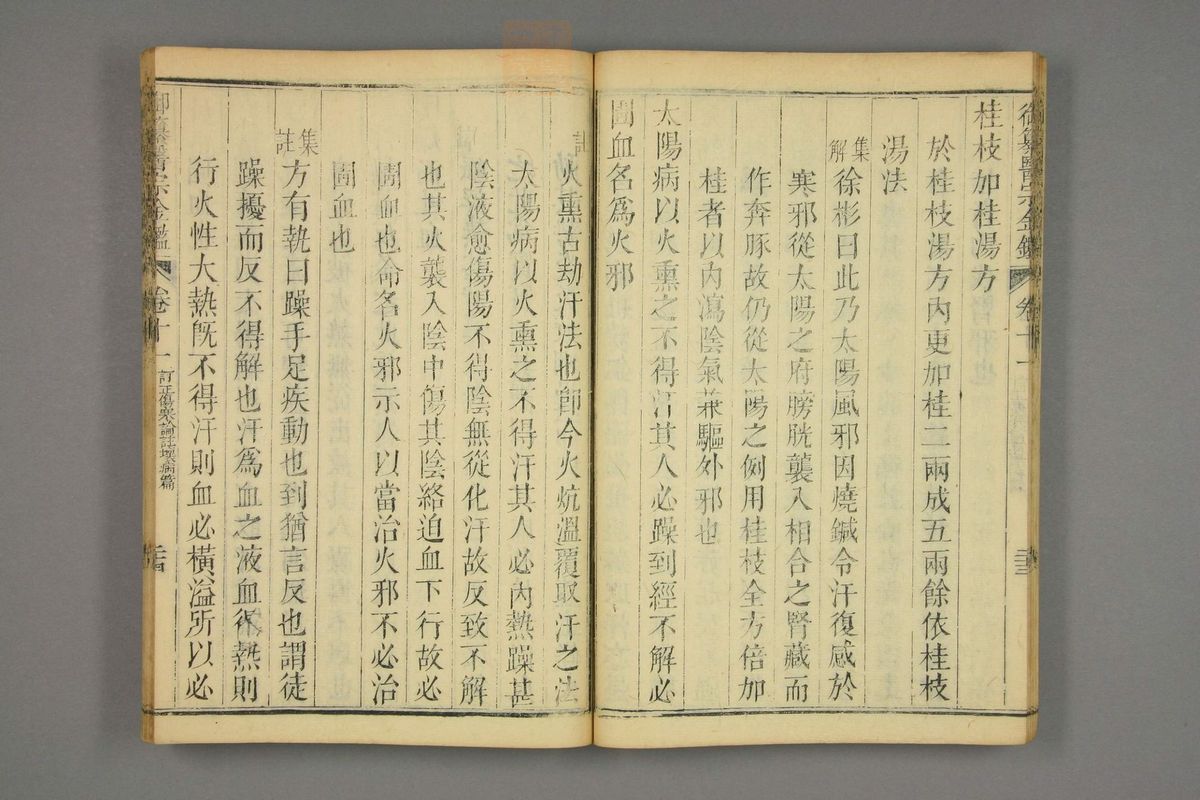 御纂醫宗金鑑 卷十一
桂枝加桂湯方
於桂枝湯方內更加桂二兩成五兩餘依桂枝
湯法
集解 徐彬曰此乃太陽風邪因燒鍼令汗復感於
寒邪從太陽之府膀胱襲入相合之腎藏而
作奔豚故仍從太陽之例用桂枝全方倍加
桂者以內瀉陰氣兼驅外邪也
太陽病以火熏之不得汗其人必躁到經不解必
圊血名爲火邪
註 火熏古劫汗法也卽今火炕溫覆取汗之法
太陽病以火熏之不得汗其人必內熱躁甚
陰液愈傷陽不得陰無從化汗故反致不解
也其火襲入陰中傷其陰絡迫血下行故必
圊血也命名火邪示人以當治火邪不必治
圊血也
集註 方有執曰躁手足疾動也到猶言反也謂徒
躁擾而反不得解也汗爲血之液血得熱則
行火性大熱旣不得汗則血必橫溢所以必
御纂醫宗金鑑 卷十一 訂正傷寒論註壞病篇